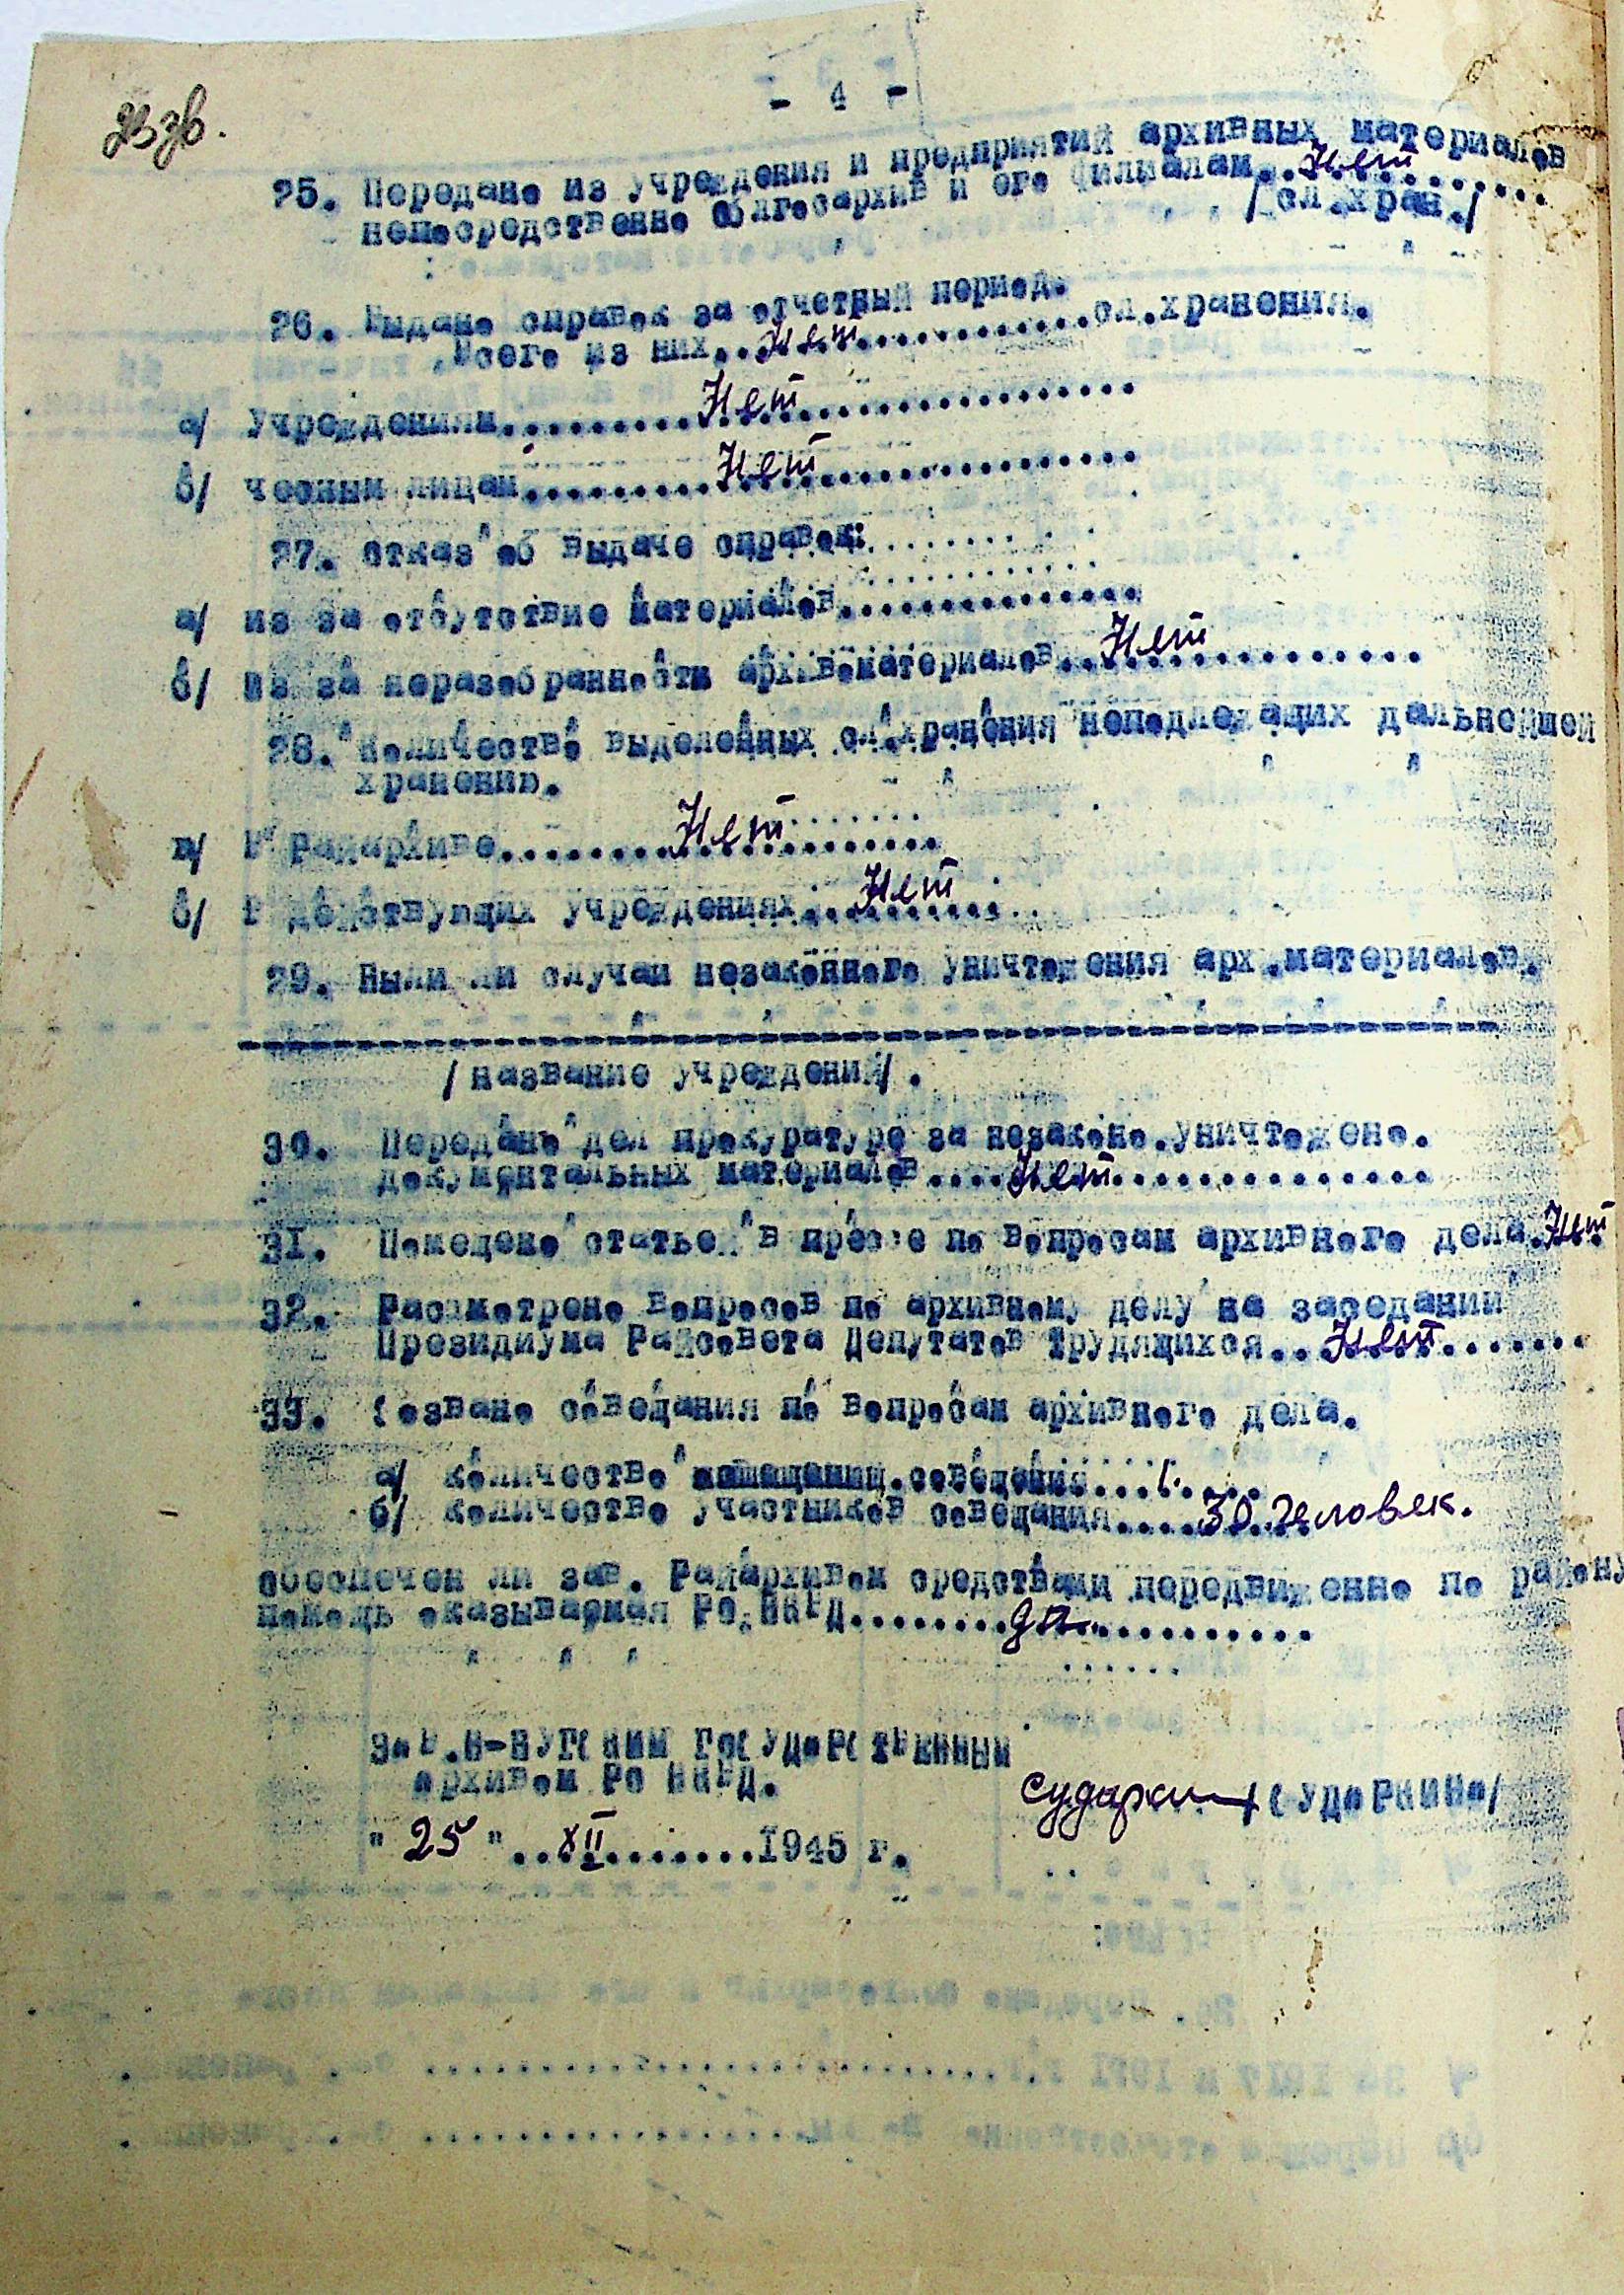 - 4 -
25. Передане из учреждения и предприятий архивных материалов
непосредственно Облгосархив и его филиалам..Нет.........
/ед.хран./
26. Выдано справок за отчетный период.
Всего из них..Нет............ед.хранения.
а/ Учреждениям......Нет..............
б/ чесным лицам......Нет..............
27. Отказ об выдаче справок:
а/ из за отсутствие материалов...............
б/ из за неразобранности архивоматериалов..Нет..............
28. Количество выделенных ед.хранения неподлежащих дальнейшей
хранению.
а/ В Райархиве......Нет.........
б/ В действующих учреждениях..Нет.......
29. Были ли случаи незаконного уничтожения арх.материалов.
/название учреждений/.
30. Передано дел прокуратуре за незаконо.уничтожено.
документальных материалов....Нет..............
31. Помедено статьей в прессе по вопросам архивного дела.Нет
32. Рассмотрено вопросов по архивному делу на заседании
Президиума Райсовета Депутатов Трудящихся..Нет.......
33. Созвано соведания по вопросам архивного дела.
а/ количество соведания...1.....
б/ количество участников соведания....30 человек.
обеспечен ли зав. Райархивом средствами передвижение по району
помодь оказываемая РО.НКВД........да...........
Зав.В-БУГСКИМ ГОСУДАРСТВЕННЫМ
архивом РО НКВД.
Сударкина /СУДАРКИНА/
" 25 "...XII........1945 г.